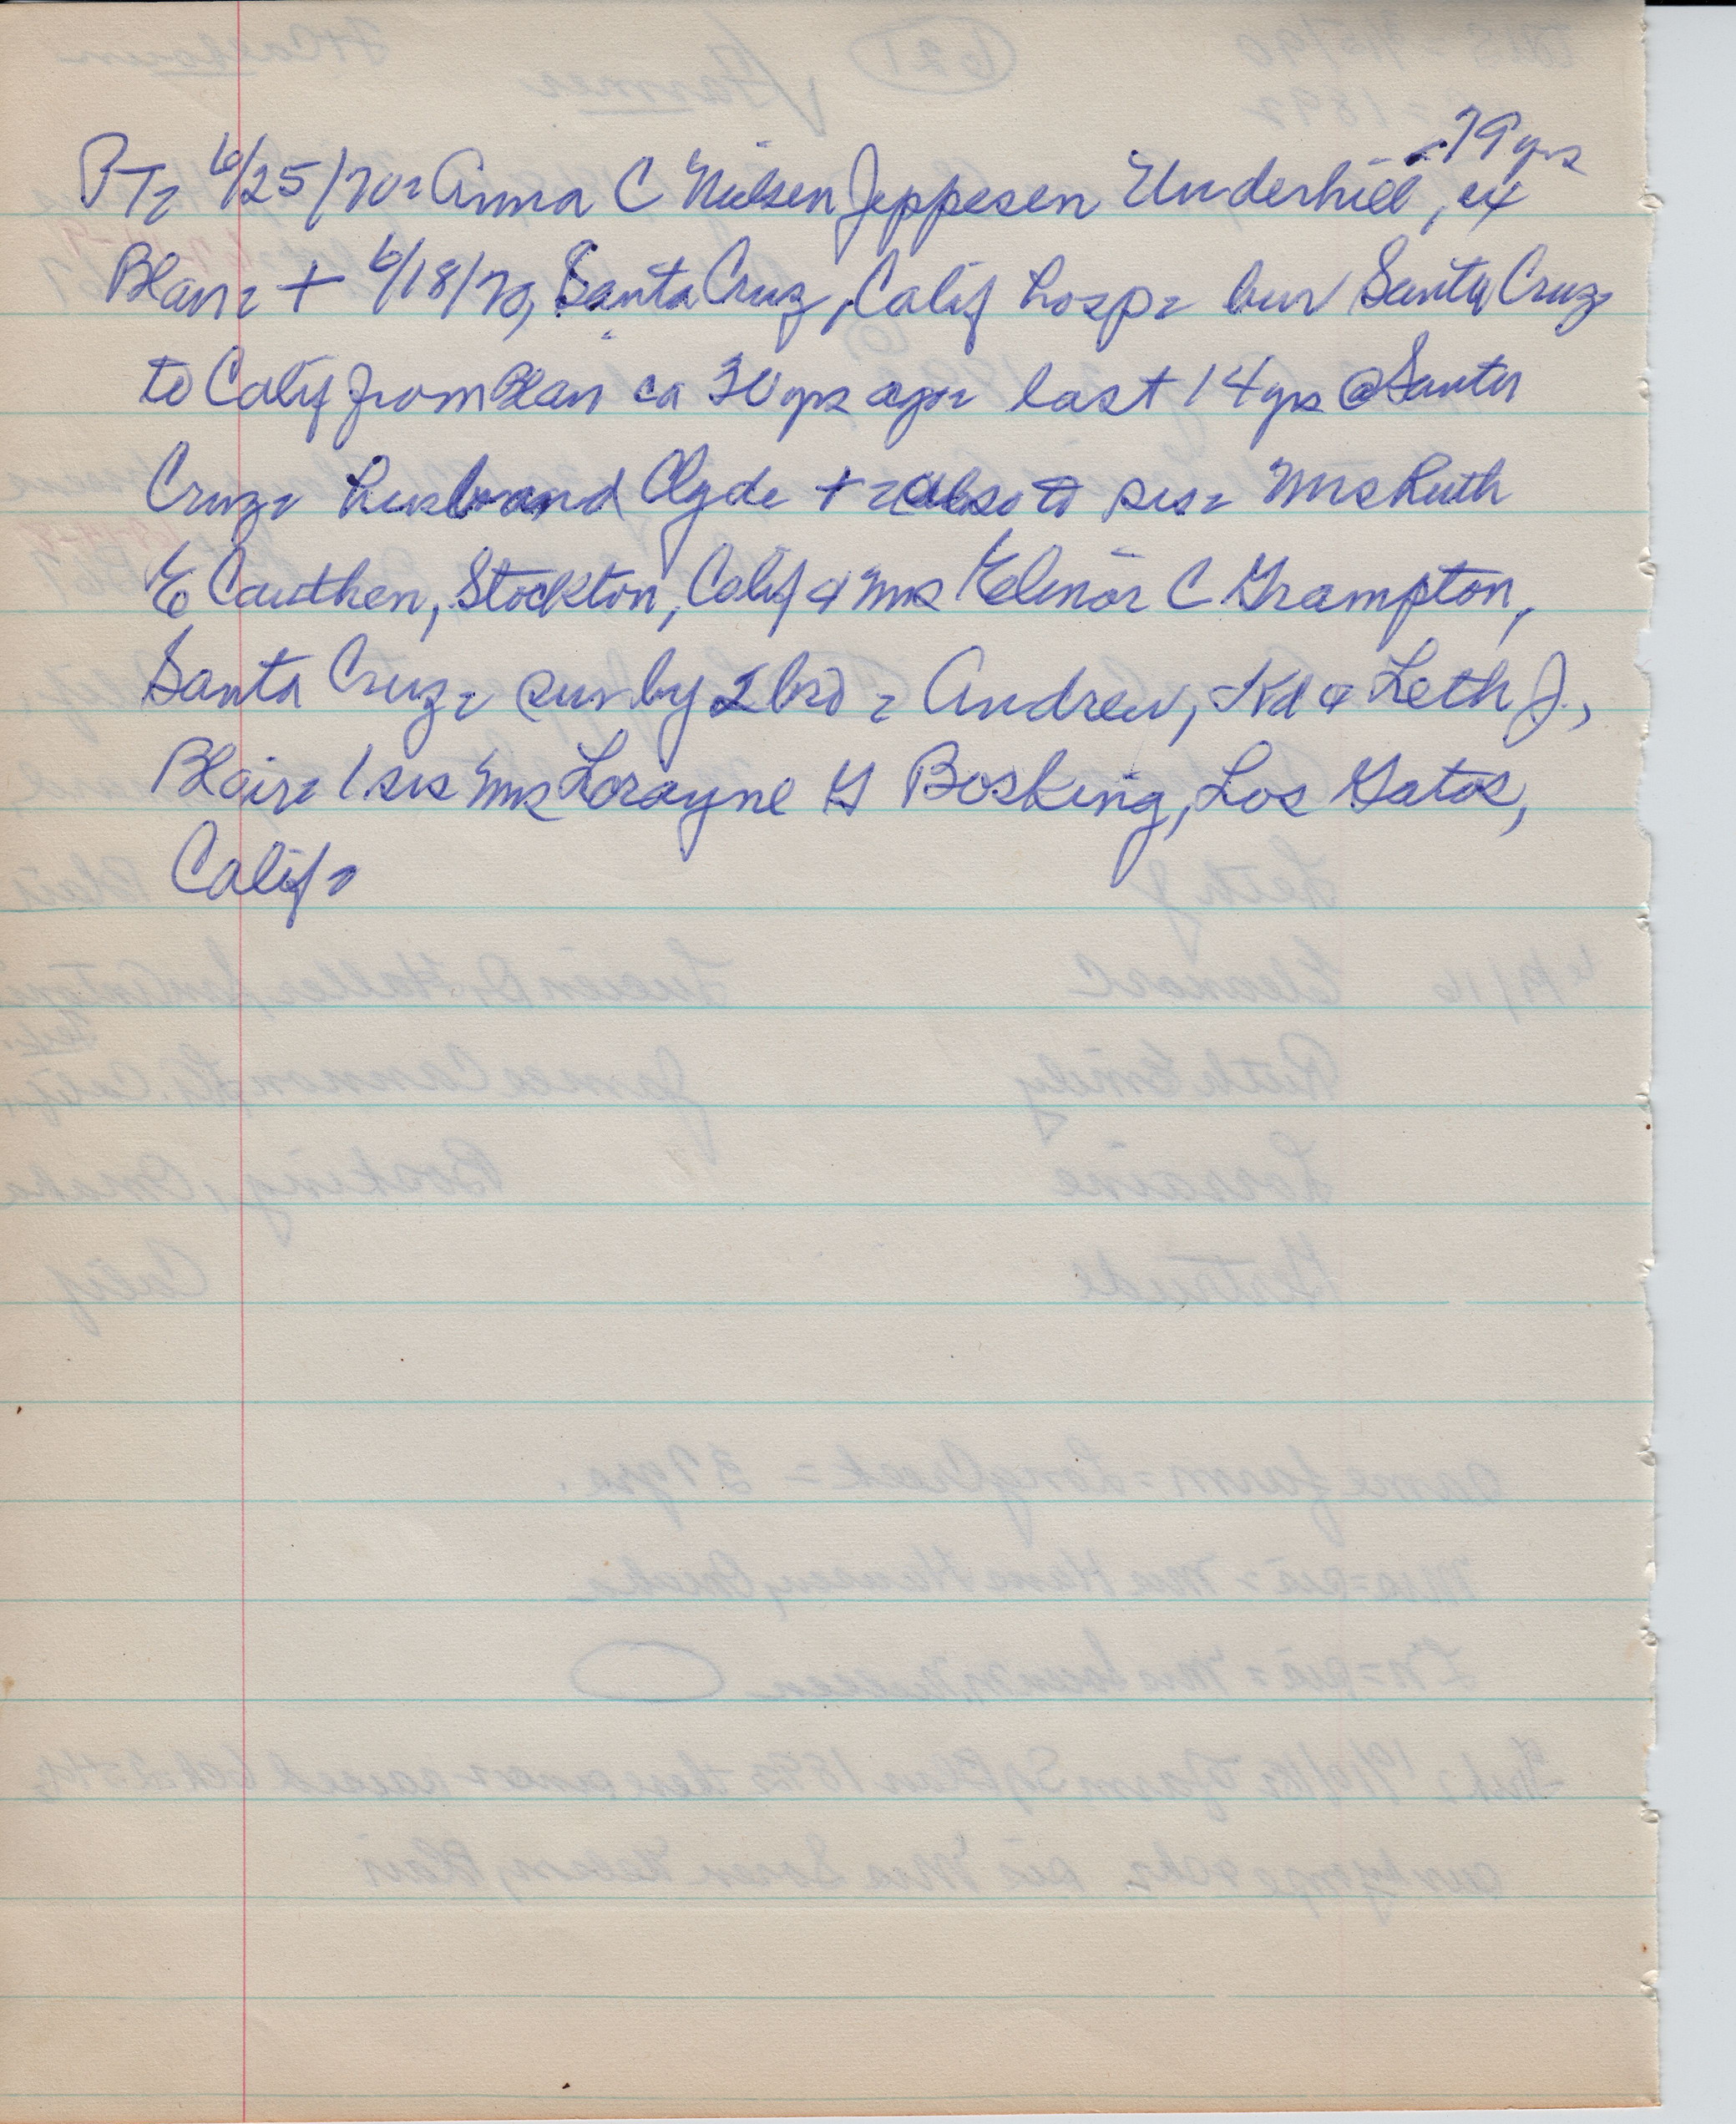 PT= 6/25/70= Anna C Nielsen Jeppesen Underhill, ex
79 yrs
Blair= + 6/18/70, Santa Cruz, Calif hosp= bur Santa Cruz=
to Calif from Blair ca 30 yrs ago= last 14 yrs @ Santa
Cruz= husband Clyde += also sis= Mrs Ruth
E Cauthen, Stockton, Calif & Mrs Elinor C Grampton,
Santa Cruz= sur by 2 bro = Andrew, Kd & Leth J.,
Blair= 1 sis Mrs Lorayne G Bosking, Los Gatos,
Calif=